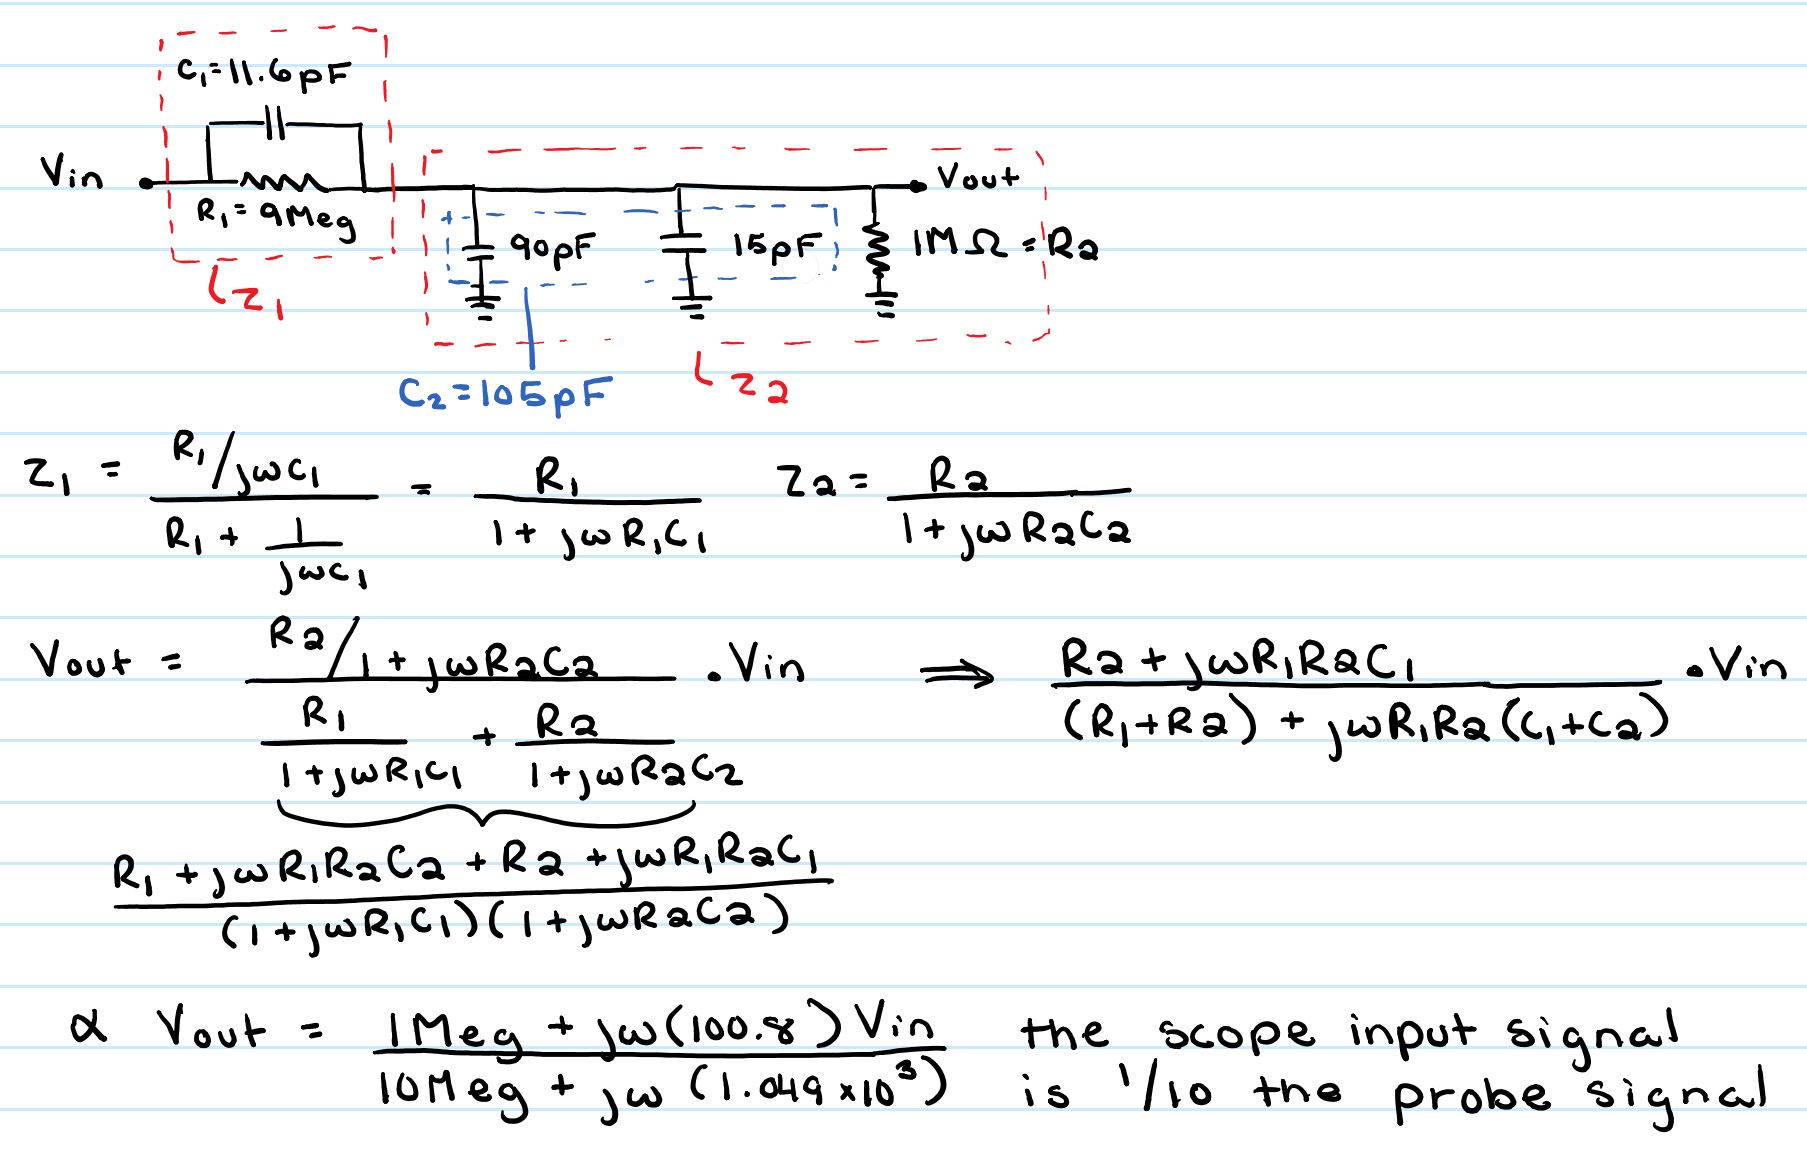 C₁=11.6pF
Vin
R₁=9Meg
Z₁
90pF
15pF
Vout
1MΩ=R2
C₂=105pF
Z2
Z₁ = (R₁/jωC₁)/(R₁ + 1/jωC₁) = R₁/(1+jωR₁C₁)    Z2 = R2/(1+jωR2C2)
Vout = (R2/1+jωR2C2)/(R₁/(1+jωR₁C₁) + R2/(1+jωR2C2)) · Vin ⇒ (R2+jωR₁R2C₁)/((R₁+R2) + jωR₁R2(C₁+C2)) · Vin
(R₁+jωR₁R2C2+R2+jωR₁R2C₁)/((1+jωR₁C₁)(1+jωR2C2))
α Vout = (1Meg + jω(100.8)Vin)/(10Meg + jω(1.049×10³)) the scope input signal
is 1/10 the probe signal